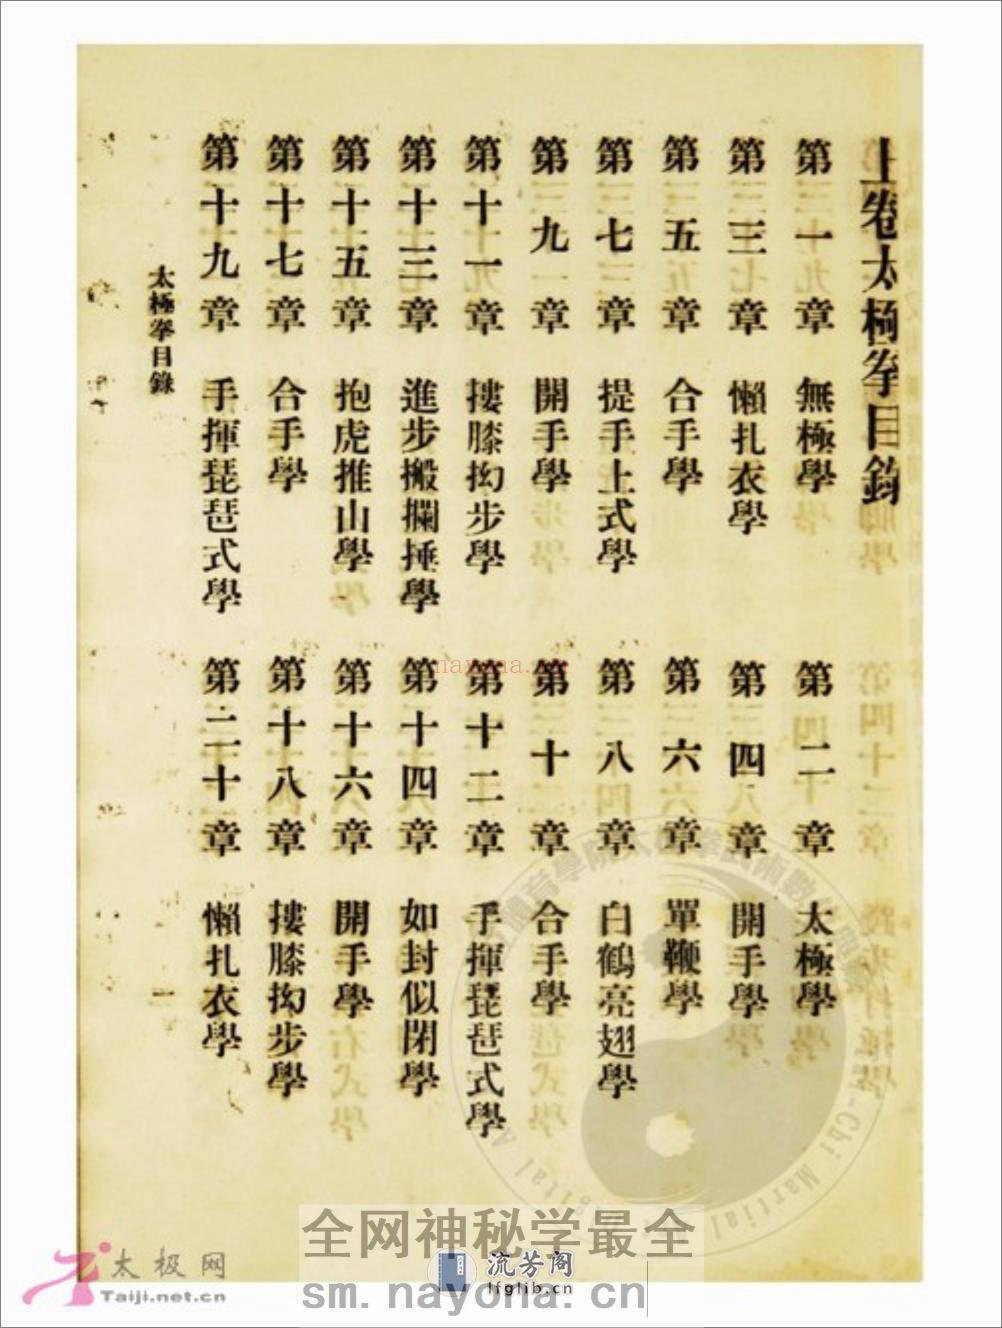 上卷太極拳目錄
第一章 無極學 第二章 太極學
第三章 懶扎衣學 第四章 開手學
第五章 合手學 第六章 單鞭學
第七章 提手上式學 第八章 白鶴亮翅學
第九章 開手學 第十章 合手學
第十一章 摟膝拗步學 第十二章 手揮琵琶式學
第十三章 進步搬攔捶學 第十四章 如封似閉學
第十五章 抱虎推山學 第十六章 開手學
第十七章 合手學 第十八章 摟膝拗步學
第十九章 手揮琵琶式學 第二十章 懶扎衣學
太極拳目錄 一
nayona.cn
全网神秘学最全
sm.nayona.cn
流芳阁
lfglib.cn
太极网
Taiji.net.cn